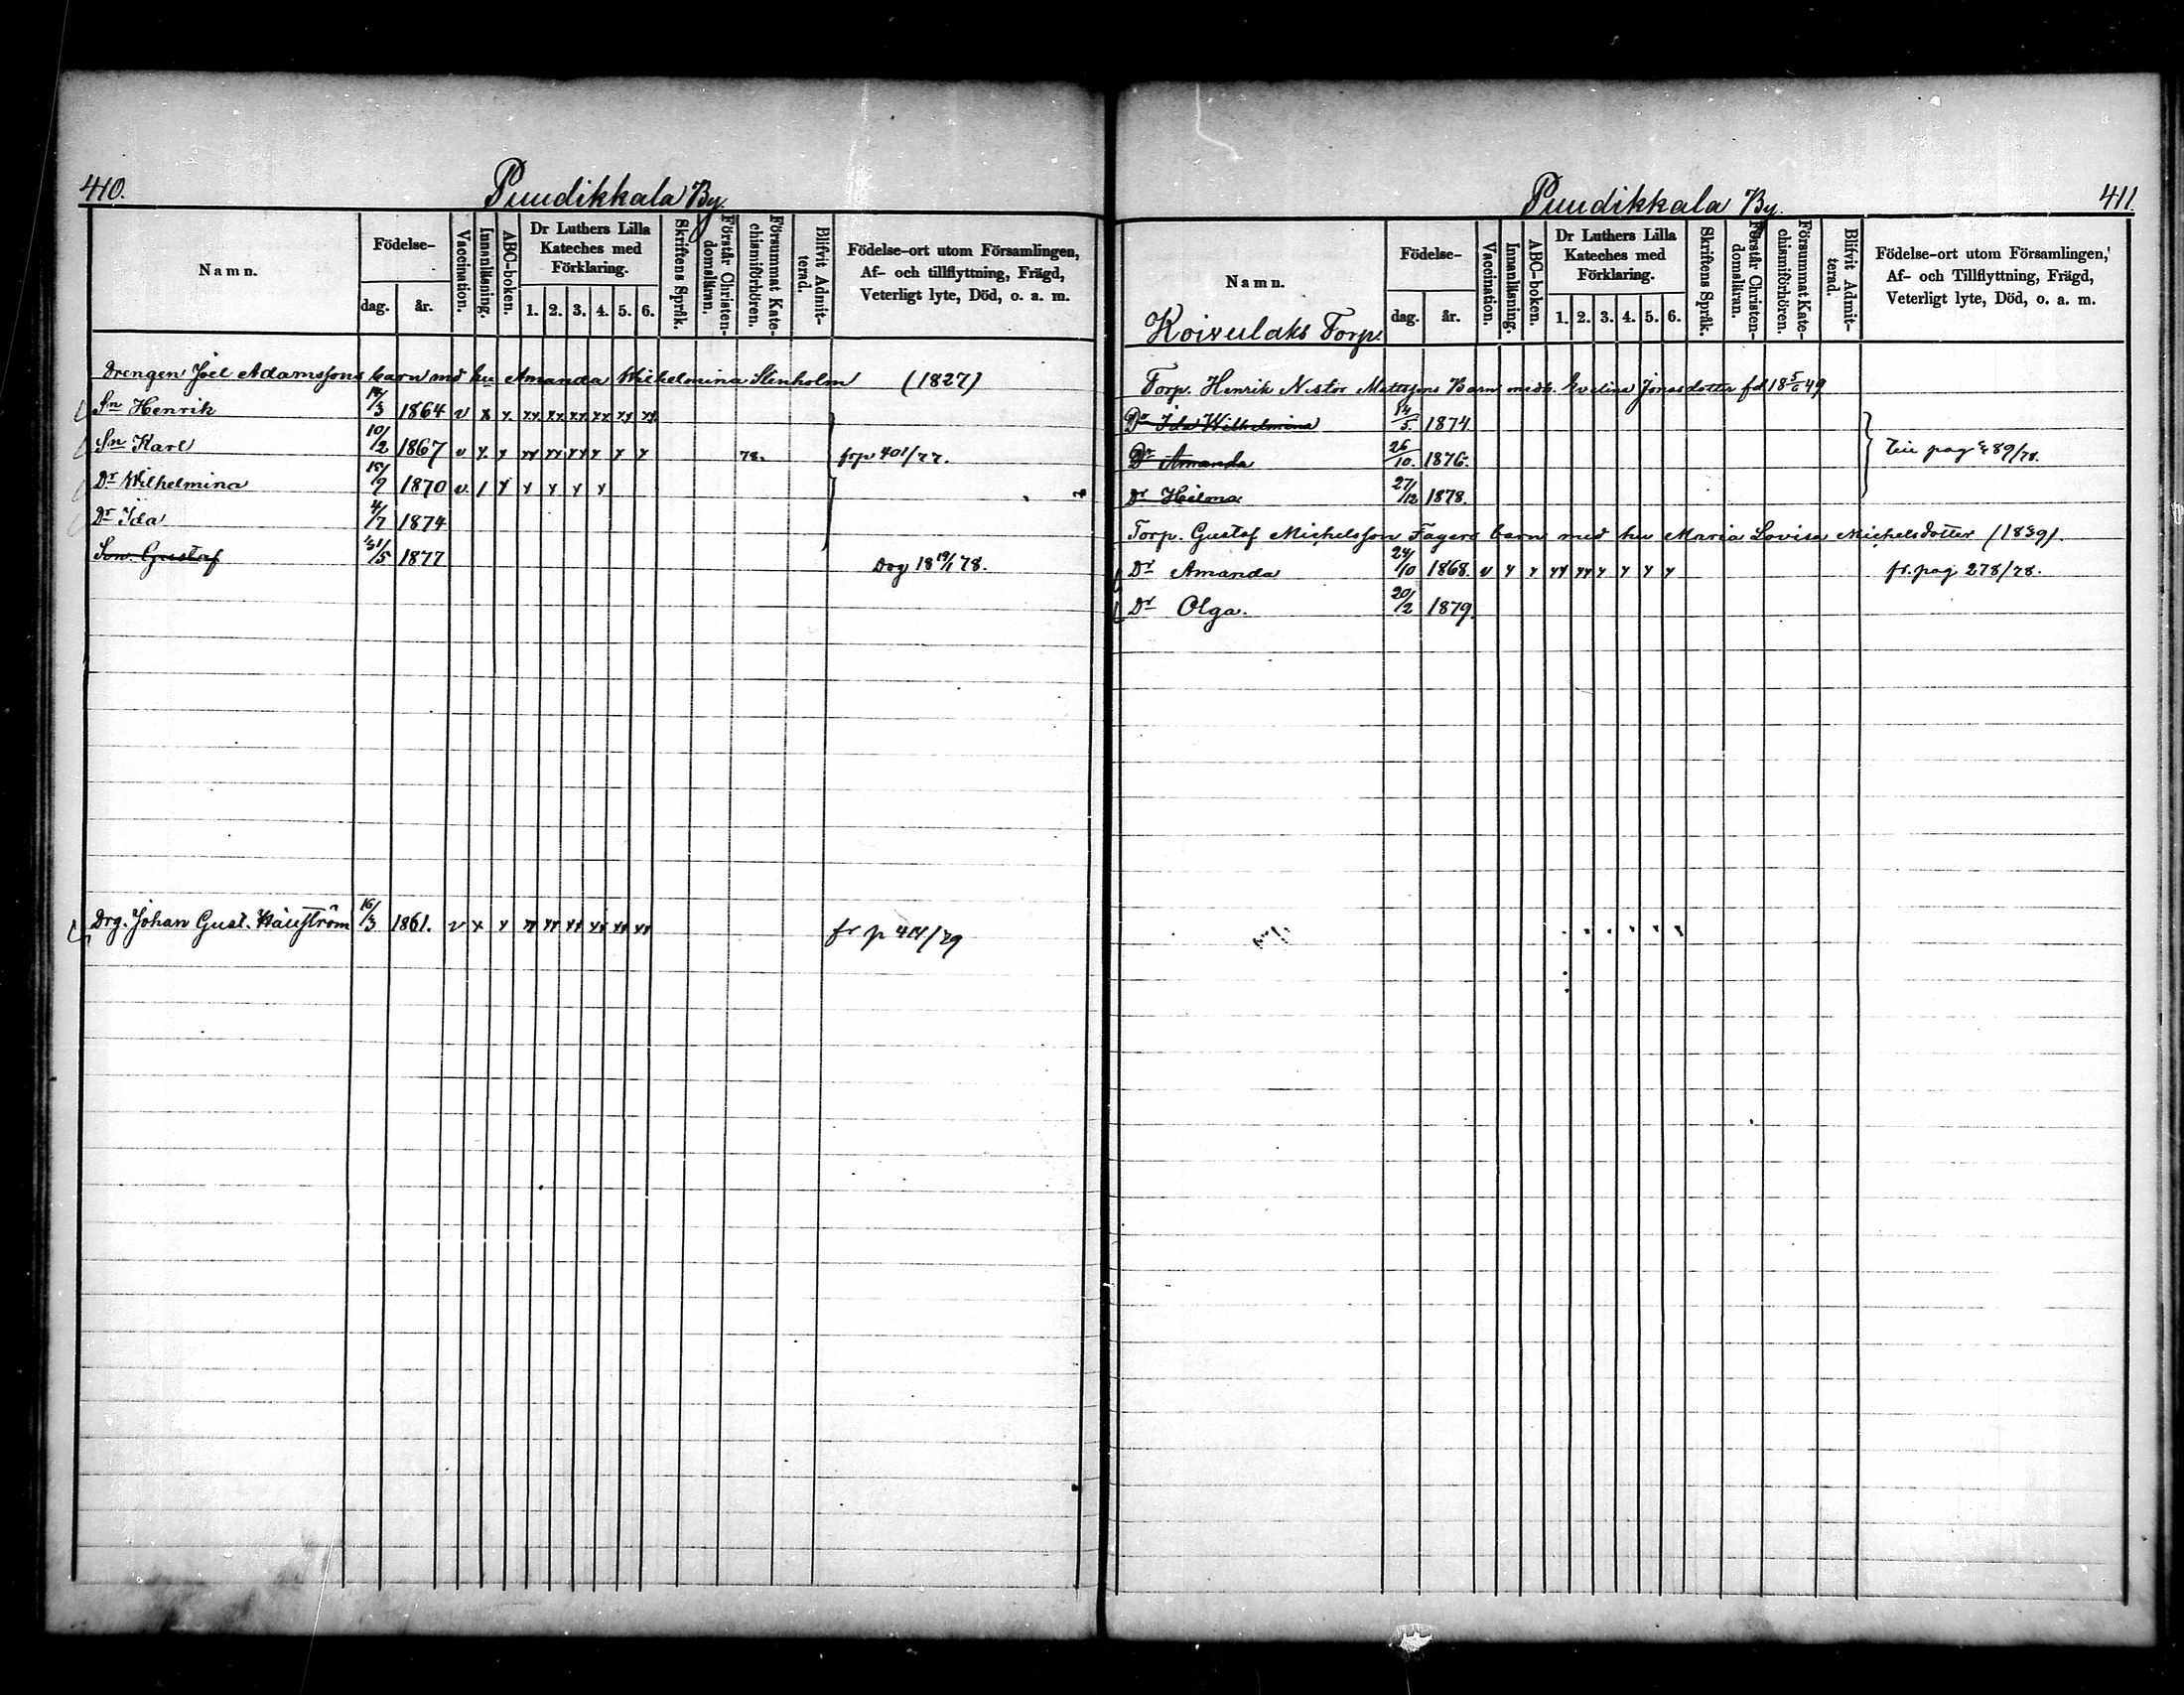 410.
Puudikkala By.
Namn.
Födelse-
dag. år.
Vaccination.
Innanläsning.
ABC-boken.
Dr Luthers Lilla Kateches med Förklaring.
1. 2. 3. 4. 5. 6.
Skriftens Språk.
Förstår Christen-domsläran.
Försummat Kate-chismiförhören.
Blifvit Admit-terad.
Födelse-ort utom Församlingen,
Af- och tillflyttning, Frägd,
Veterligt lyte, Död, o. a. m.
Drengen Joel Adamssons barn md hu Amanda Wilhelmina Stenholm (1827)
Sn Henrik /3 1864 v x x. xx. xx xx xx xx xx
Sn Karl 10/2 1867 v x x xx xx xx x x 78. frp 401/77.
Dr Wilhelmina 18/9 1870 v / x x x x x
Dr Ida 4/7 1874
Son Gustaf 31/5 1877 Dog 18 19/1 78.
Drg. Johan Gust. 16/3 1861. v x x xx xx xx xx xx xx fr p 414/79
411
Puudikkala By.
Namn.
Koivulaks Torp.
Födelse-
dag. år.
Vaccination.
Innanläsning.
ABC-boken.
Dr Luthers Lilla Kateches med Förklaring.
1. 2. 3. 4. 5. 6.
Skriftens Språk.
Förstår Christen-domsläran.
Försummat Kate-chismiförhören.
Blifvit Admit-terad.
Födelse-ort utom Församlingen,
Af- och Tillflyttning, Frägd,
Veterligt lyte, Död, o. a. m.
Torp. Henrik Nestor Mattssons Barn med h. Evelina Jonasdotter fd 18 5/6 49
Dr Ida Wilhelmina 14/5. 1874
Dr Amanda 26/10. 1876.
Dr Hilma 27/12 1878.
Torp. Gustaf Michelsson Fagers barn med hu Maria Lovisa Michelsdotter (1839).
Dr Amanda 24/10 1868. v x x xx xx x x x x fr. pag 278/78.
Dr Olga. 20/2 1879.